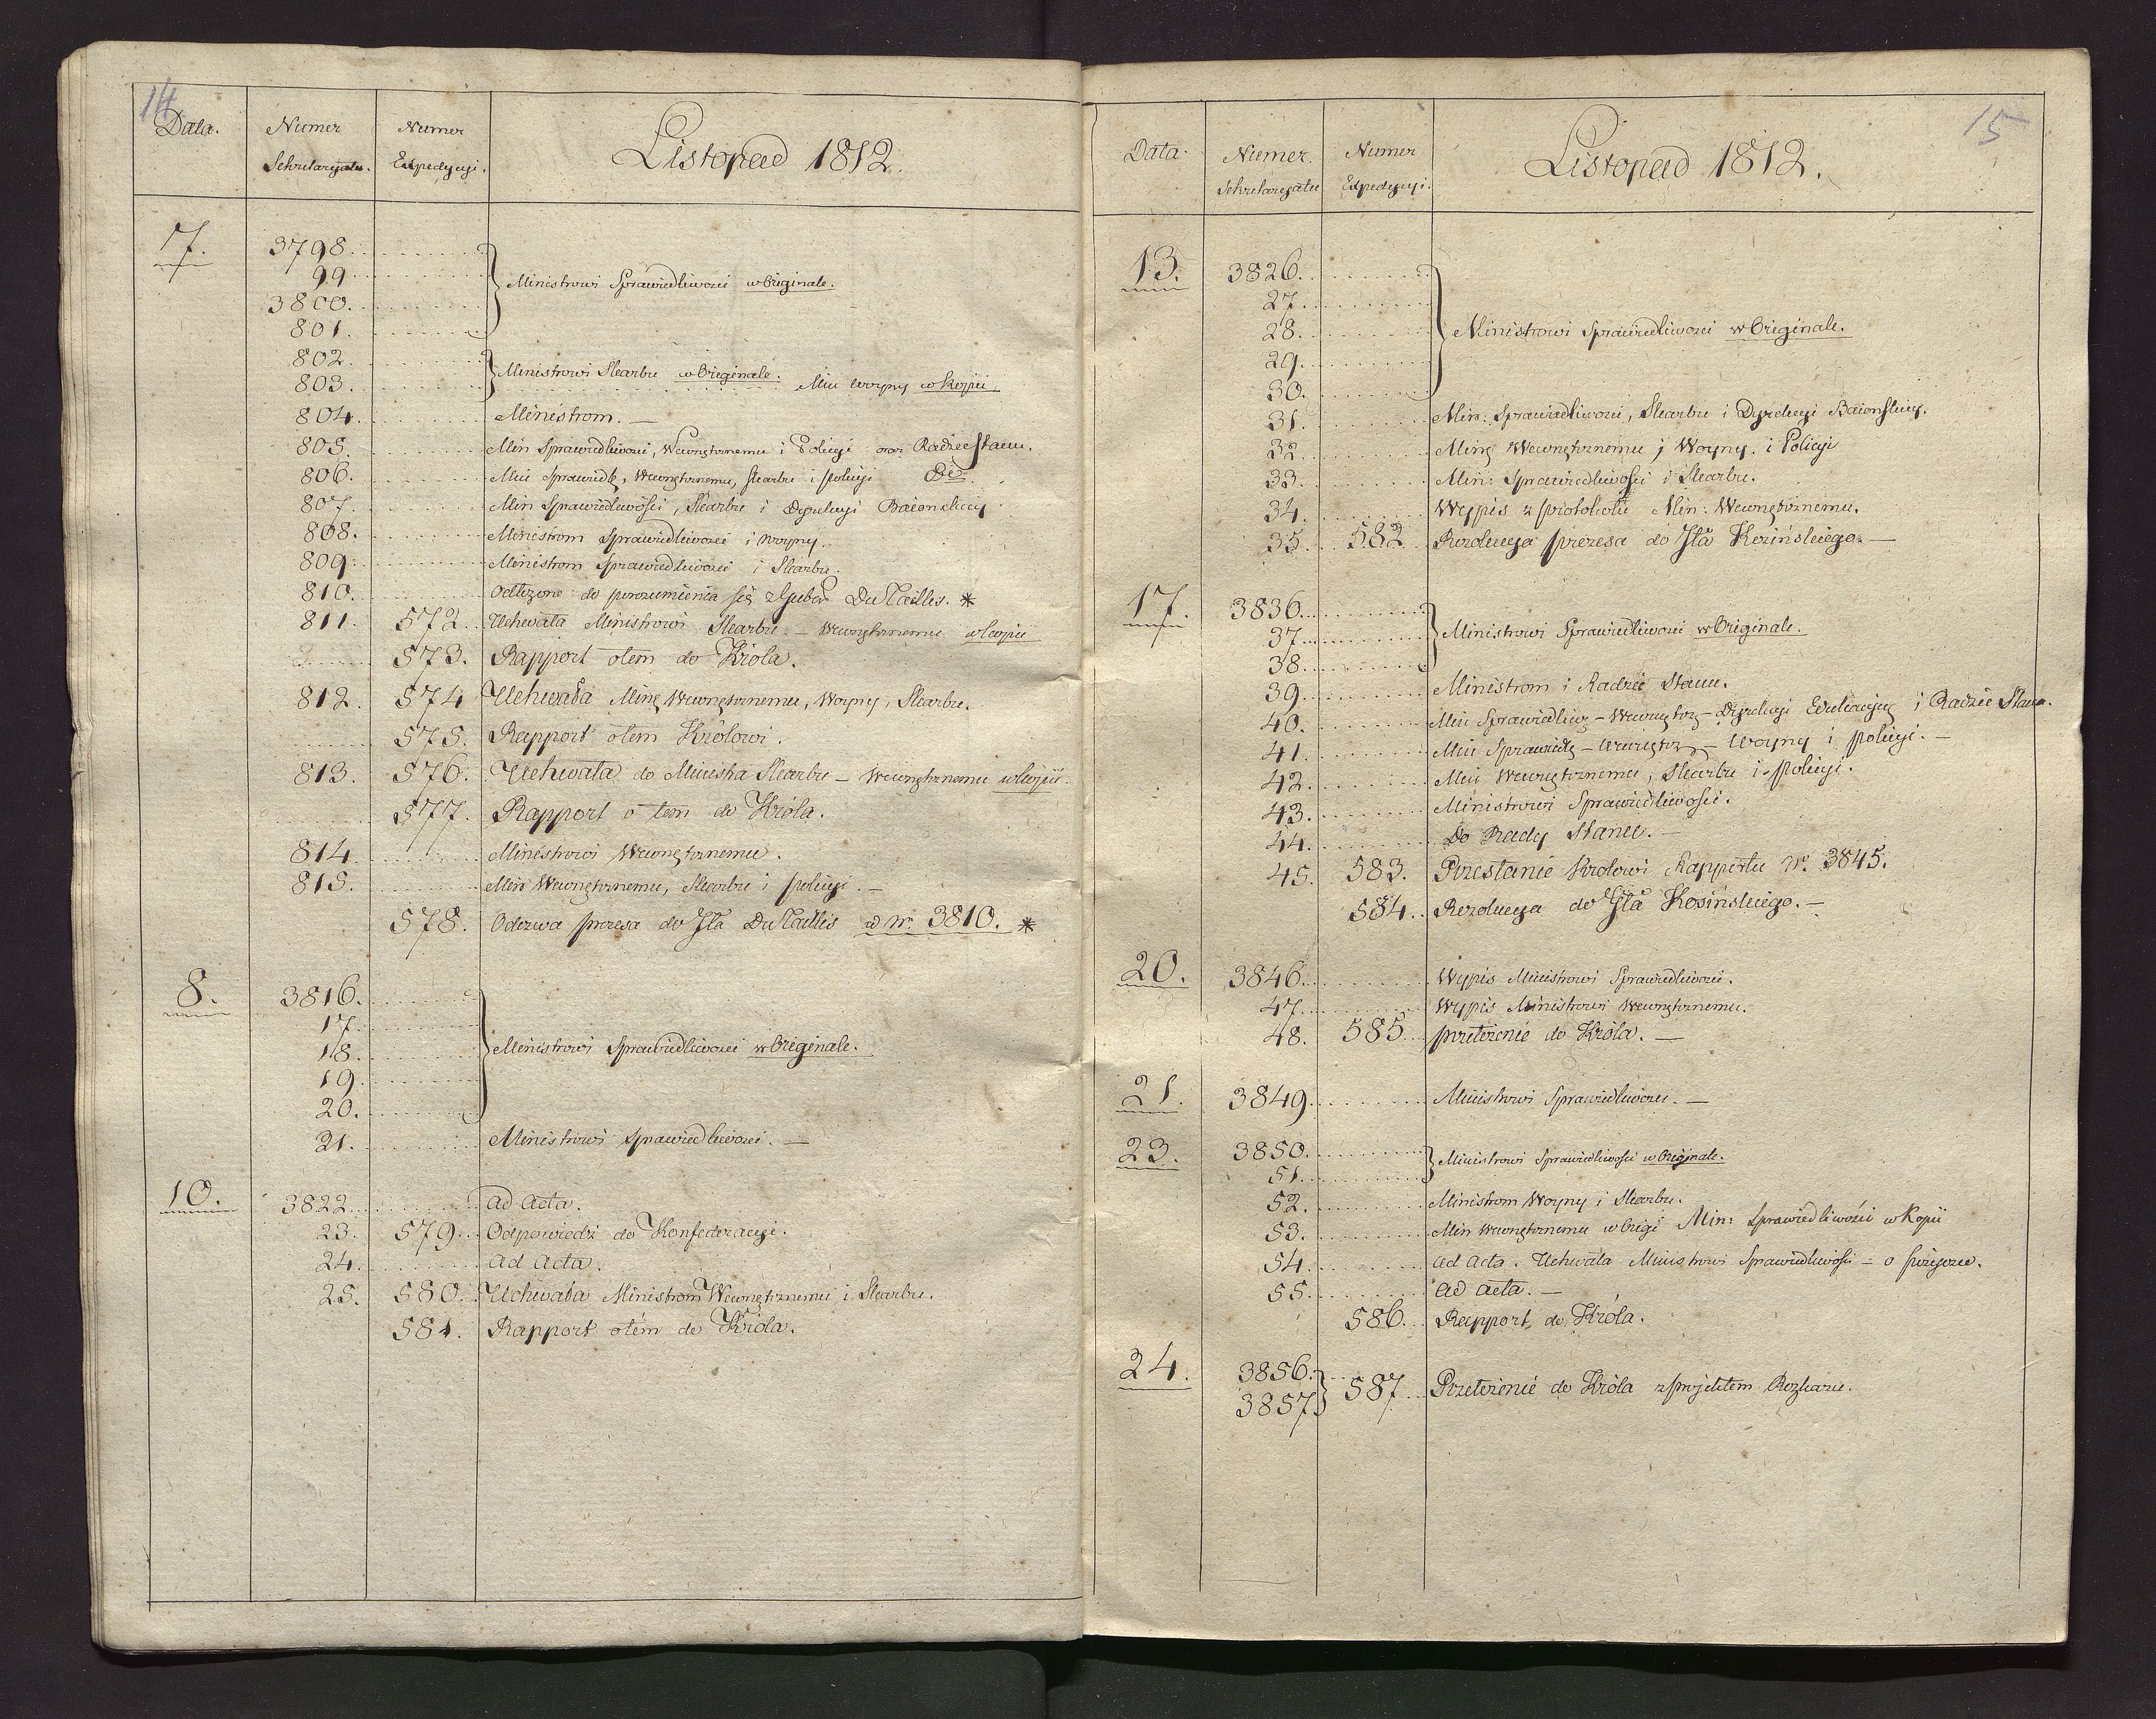 14
Data. Numer Sekretaryatu. Numer Expedycyi. Listopad 1812.
7. 3798.
99.
3800. Ministrowi Sprawiedliwości w Originale.
801.
802.
803. Ministrowi Skarbu w Originale. Min Woyny w Kopii
804. Ministrom. —
805. Min Sprawiedliwości, Wewnętrznemu i Policyi oraz Radzie Stanu.
806. Min Sprawiedl, Wewnętrznemu, Skarbu i policyi
807. Min Sprawiedliwości, Skarbu i Dyrekcyi Baionskiey
808. Ministrom Sprawiedliwości i woyny.
809. Ministrom Sprawiedliwości i Skarbu.
810. Odłożone do porozumienia się z Guber Du Taillis. *
811. 572. Uchwała Ministrowi Skarbu. – Wewnętrznemu w kopii
573. Rapport o tem do Króla.
812. 574 Uchwała Min Wewnętrznemu, Woyny, Skarbu.
575. Rapport o tem Królowi.
813. 576. Uchwała do Ministra Skarbu – Wewnętrznemu w kopii.
577. Rapport o tem do Króla.
814. Ministrowi Wewnętrznemu.
815. Min Wewnętrznemu, Skarbu i policyi. —
578. Odezwa prezesa do Jła Du Taillis ad Nr. 3810. *
8. 3816.
17.
18. Ministrowi Sprawiedliwości w Originale.
19.
20.
21. Ministrowi Sprawiedliwości. —
10. 3822. ad acta.
23. 579. Odpowiedź do Konfederacyi.
24. ad acta.
25. 580. Uchwała Ministrom Wewnętrznemu i Skarbu.
581. Rapport o tém do Króla.
15
Data. Numer Sekretaryatu Numer Expedycyi. Listopad 1812.
13. 3826.
27.
28. Ministrowi Sprawiedliwości w Originale.
29.
30.
31. Min: Sprawiedliwości, Skarbu i Dyrekcyi Baionskiey.
32. Min Wewnętrznemu, Woyny. i Policyi
33. Min: Sprawiedliwości i Skarbu.
34. Wypis z protokołu Min: Wewnętrznemu.
35. 582 Rezolucya prezesa do Jła Kozińskiego. —
17. 3836.
37. Ministrowi Sprawiedliwości w Originale.
38.
39. Ministrom i Radzie Stanu.
40. Min Sprawiedliw – Wewnętrz – Dyrekcyi Edukacyiney i Radzie Stanu.
41. Min Sprawiedl – Wewnętrz – Woyny i policyi. –
42. Min Wewnętrznemu, Skarbu i policyi.
43. Ministrowi Sprawiedliwości.
44. Do Rady Stanu. —
45. 583. Przesłanie Królowi Rapportu Nr. 3845.
584. Rezolucya do Jła Kosińskiego. —
20. 3846. Wypis Ministrowi Sprawiedliwości.
47. Wypis Ministrowi Wewnętrznemu.
48. 585. przełożenie do Króla. —
21. 3849. Ministrowi Sprawiedliwości. —
23. 3850.
51. Ministrowi Sprawiedliwości w Originale.
52. Ministrom Woyny i Skarbu.
53. Min Wewnętrznemu w Origi Min: Sprawiedliwości w Kopii
54. ad acta. Uchwała Ministrowi Sprawiedliwości – o pożyczce.
55. ad acta. —
586. Rapport do Króla.
24. 3856.
3857 587 Przełożenie do Króla z projektem Rozkazu.